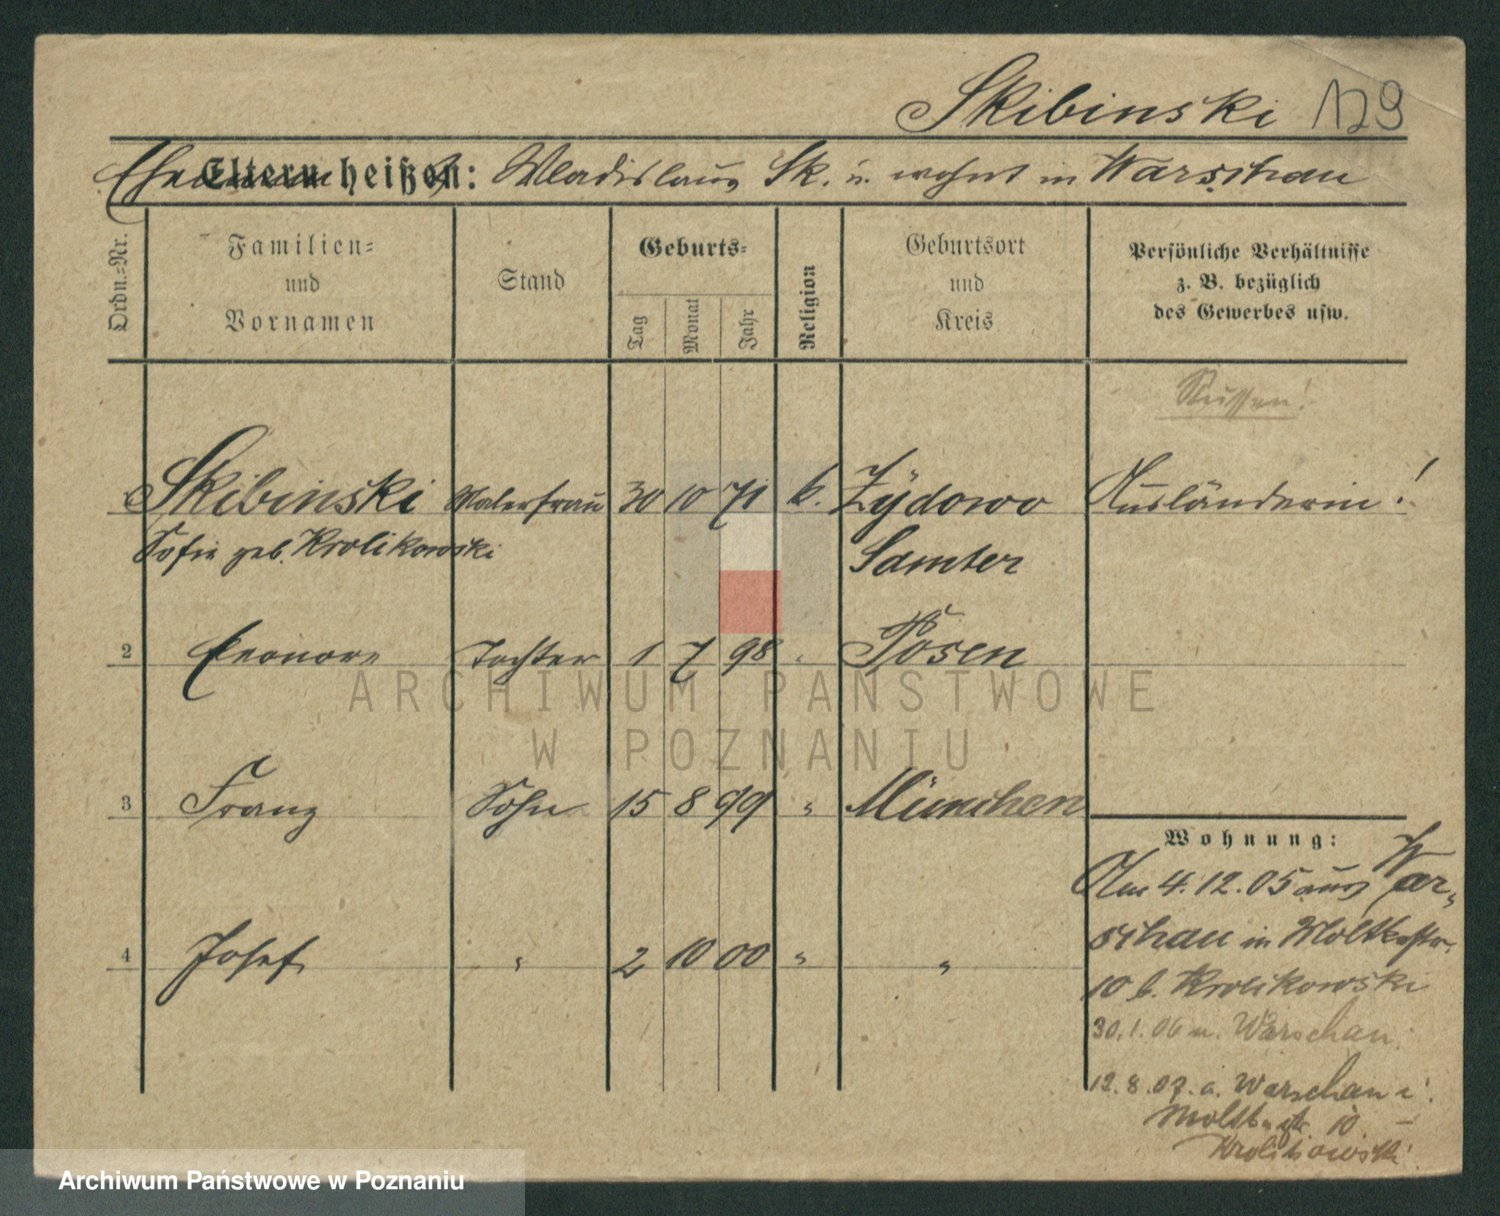 Skibinski 129
Ehemann heißt: Wladislaus Sk. u. wohnt in Warschau
Eltern heißen:
Ordn.=Nr.
Familien=
und
Vornamen
Stand
Geburts=
Tag
Monat
Jahr
Religion
Geburtsort
und
Kreis
Persönliche Verhältnisse
z. B. bezüglich
des Gewerbes usw.
Russen!
Skibinski Malerfrau 30 10 71 k. Żydowo Ausländerin!
Sofie geb. Krolikowski Samter
2 Eleonore Tochter 1 7 98 " Posen
3 Franz Sohn 15 8 99 " München
4 Josef " 2 10 00 " "
Wohnung:
Am 4.12.05 aus War-
schau in Moltkestr.
10 b. Krolikowski
30.1.06 n. Warschau.
12.8.07. a. Warschau i.
Moltkestr 10
Krolikowski.
ARCHIWUM PAŃSTWOWE
W POZNANIU
Archiwum Państwowe w Poznaniu